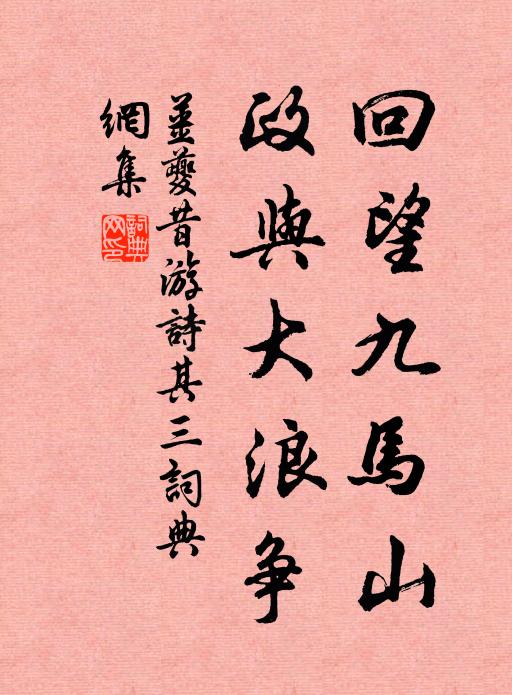 回望九馬山
政與大浪争
姜夔昔游詩其三詞典
網集
詞典網印